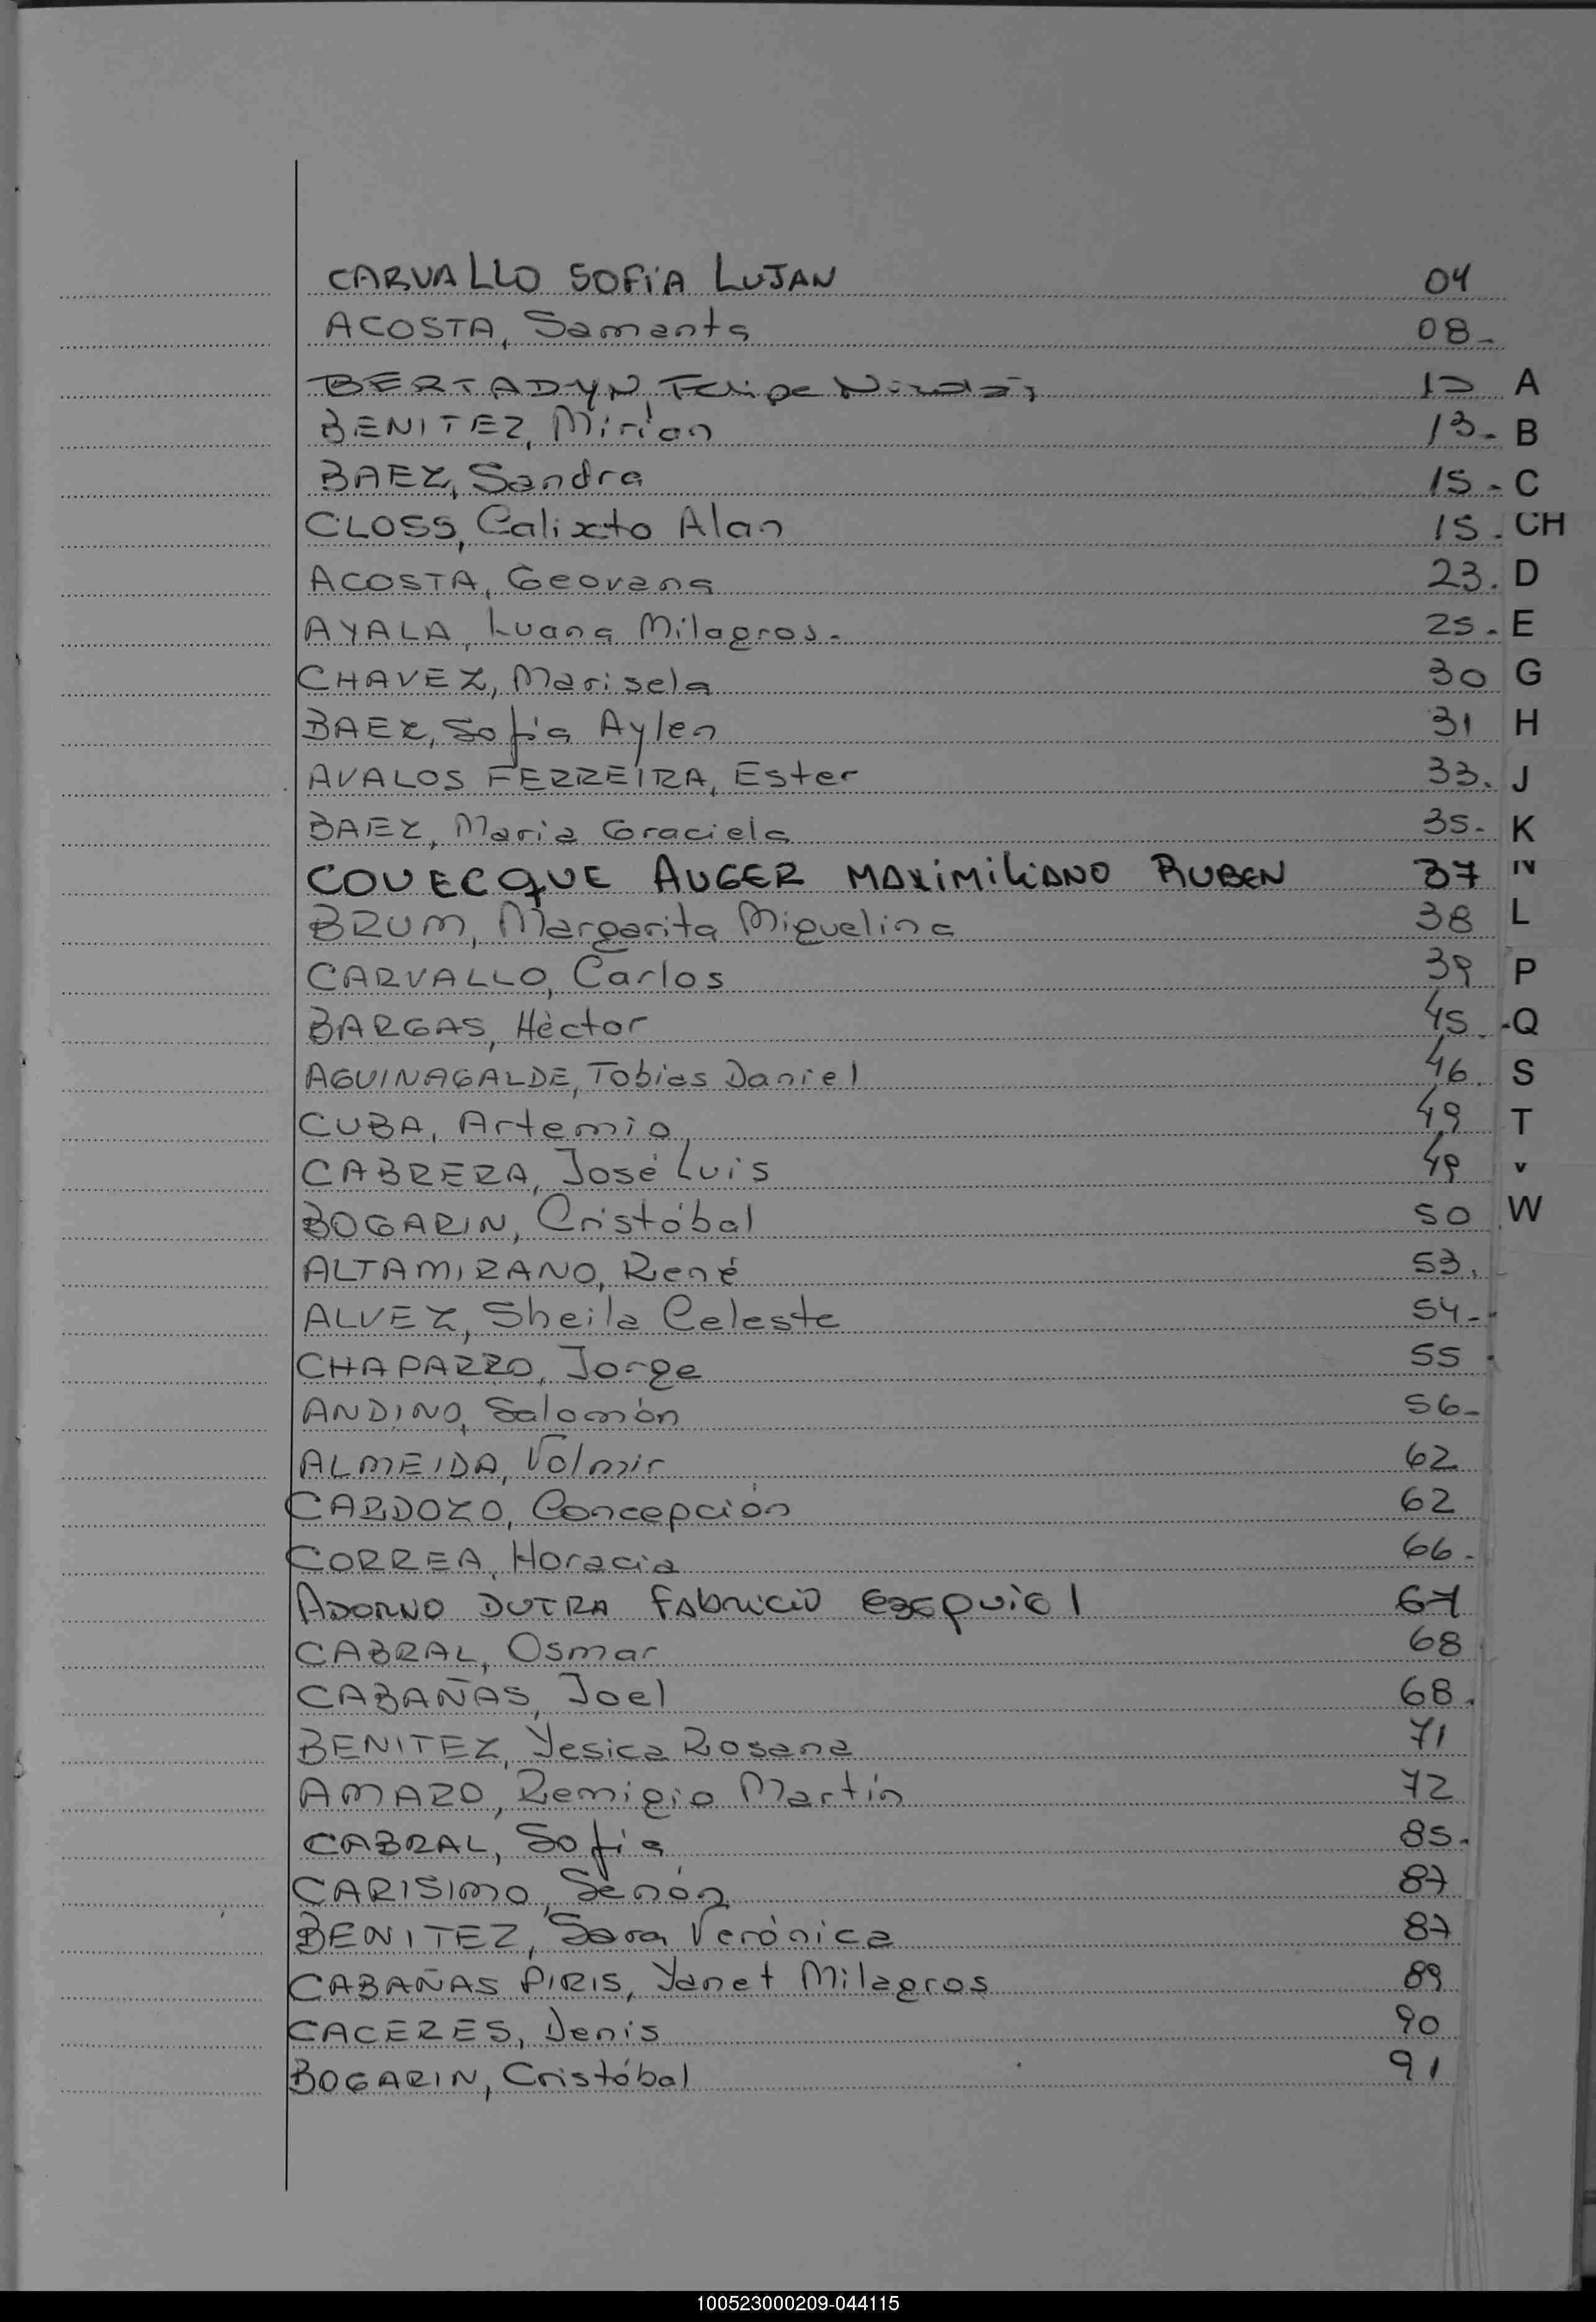 CARVALLO SOFÍA LUJAN 04
ACOSTA, Samanta 08-
A
BENITEZ, Mirian 13- B
BAEZ, Sandra 15- C
CLOSS, Calixto Alan 15. CH
ACOSTA, Geovana 23. D
AYALA, Luana Milagros.- 25- E
CHAVEZ, Marisela 30 G
BAEZ, Sofia Aylen 31 H
AVALOS FERREIRA, Ester 33. J
BAEZ, Maria Graciela 35- K
COUECQUE AUGER MAXIMILIANO RUBEN 37
BRUM, Margarita Miguelina 38 L
CARVALLO, Carlos 39 P
BARGAS, Hèctor 45.- Q
AGUINAGALDE, Tobias Daniel 46. S
CUBA, Artemio 49 T
CABRERA, José Luis 49 v
BOGARIN, Cristóbal 50 W
ALTAMIRANO, René 53.
ALVEZ, Sheila Celeste 54-
CHAPARRO, Jorge 55.
ANDINO, Salomón 56-
ALMEIDA, Volmir 62
CARDOZO, Concepción 62
CORREA, Horacia 66.
ADORNO DUTRA FABRICIO EZEQUIEL 67
CABRAL, Osmar 68
CABAÑAS, Joel 68.
BENITEZ, Yesica Rosana 71
AMARO, Remigio Martín 72
CABRAL, Sofia 85.
CARISIMO, Senón 87
BENITEZ, Sara Verónica 87
CABAÑAS PIRIS, Yanet Milagros 89
CACERES, Denis 90
BOGARIN, Cristóbal 91
100523000209-044115